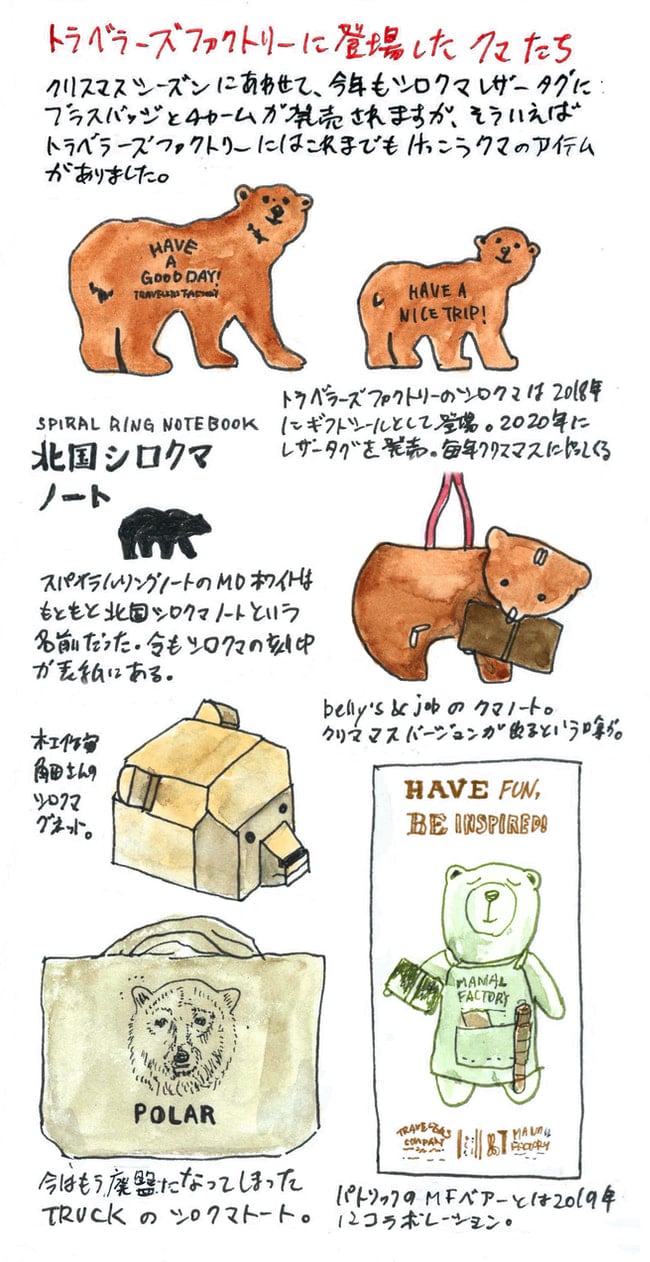 トラベラーズファクトリーに登場したクマたち
クリスマスシーズンにあわせて、今年もシロクマレザータグに
ブラスバッジとチャームが発売されますが、そういえば
トラベラーズファクトリーにはこれまでもけっこうクマのアイテム
がありました。
HAVE
A
GOOD DAY!
TRAVELERS FACTORY
HAVE A
NICE TRIP!
トラベラーズファクトリーのシロクマは2018年
にギフトツールとして登場。2020年に
レザータグを発売。毎年クリスマスにやってくる
SPIRAL RING NOTEBOOK
北国シロクマ
ノート
スパイラルリングノートのMDホワイトは
もともと北国シロクマノートという
名前だった。今もシロクマの刻印
が表紙にある。
belly's & jobのクマノート。
クリマスバージョンが出るという噂が。
木工作家
角田さんの
シロクマ
グネット。
HAVE FUN,
BE INSPIRED!
MANAL
FACTORY
POLAR
TRAVELER'S
COMPANY
&
FACTORY
今はもう廃盤になってしまった
TRUCKのシロクマトート。
パトリックのMFベアーとは2019年
にコラボレーション。